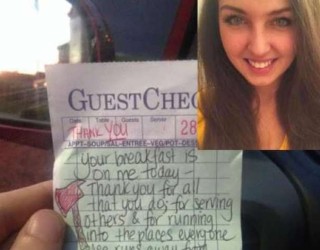 GUESTCHEC
Date Table Guests Server
THANK YOU 28
APPT-SOUP/SAL-ENTREE-VEG/POT-DES
your breakfast is
on me today -
Thank you for all
that you do; for serving
others & for running
into the places everyone
else runs away from